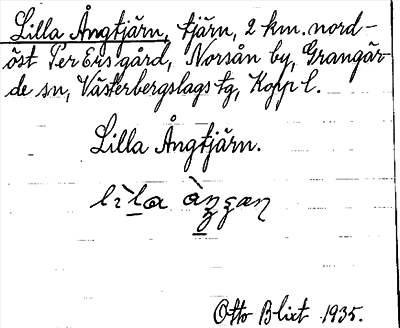 Lilla Ångtjärn, tjärn, 2 km. nord-
öst Per Ersgård, Norsån by, Grangär-
de sn, Västerbergslags tg, Kopp l.
Lilla Ångtjärn.
Otto Blixt 1935.